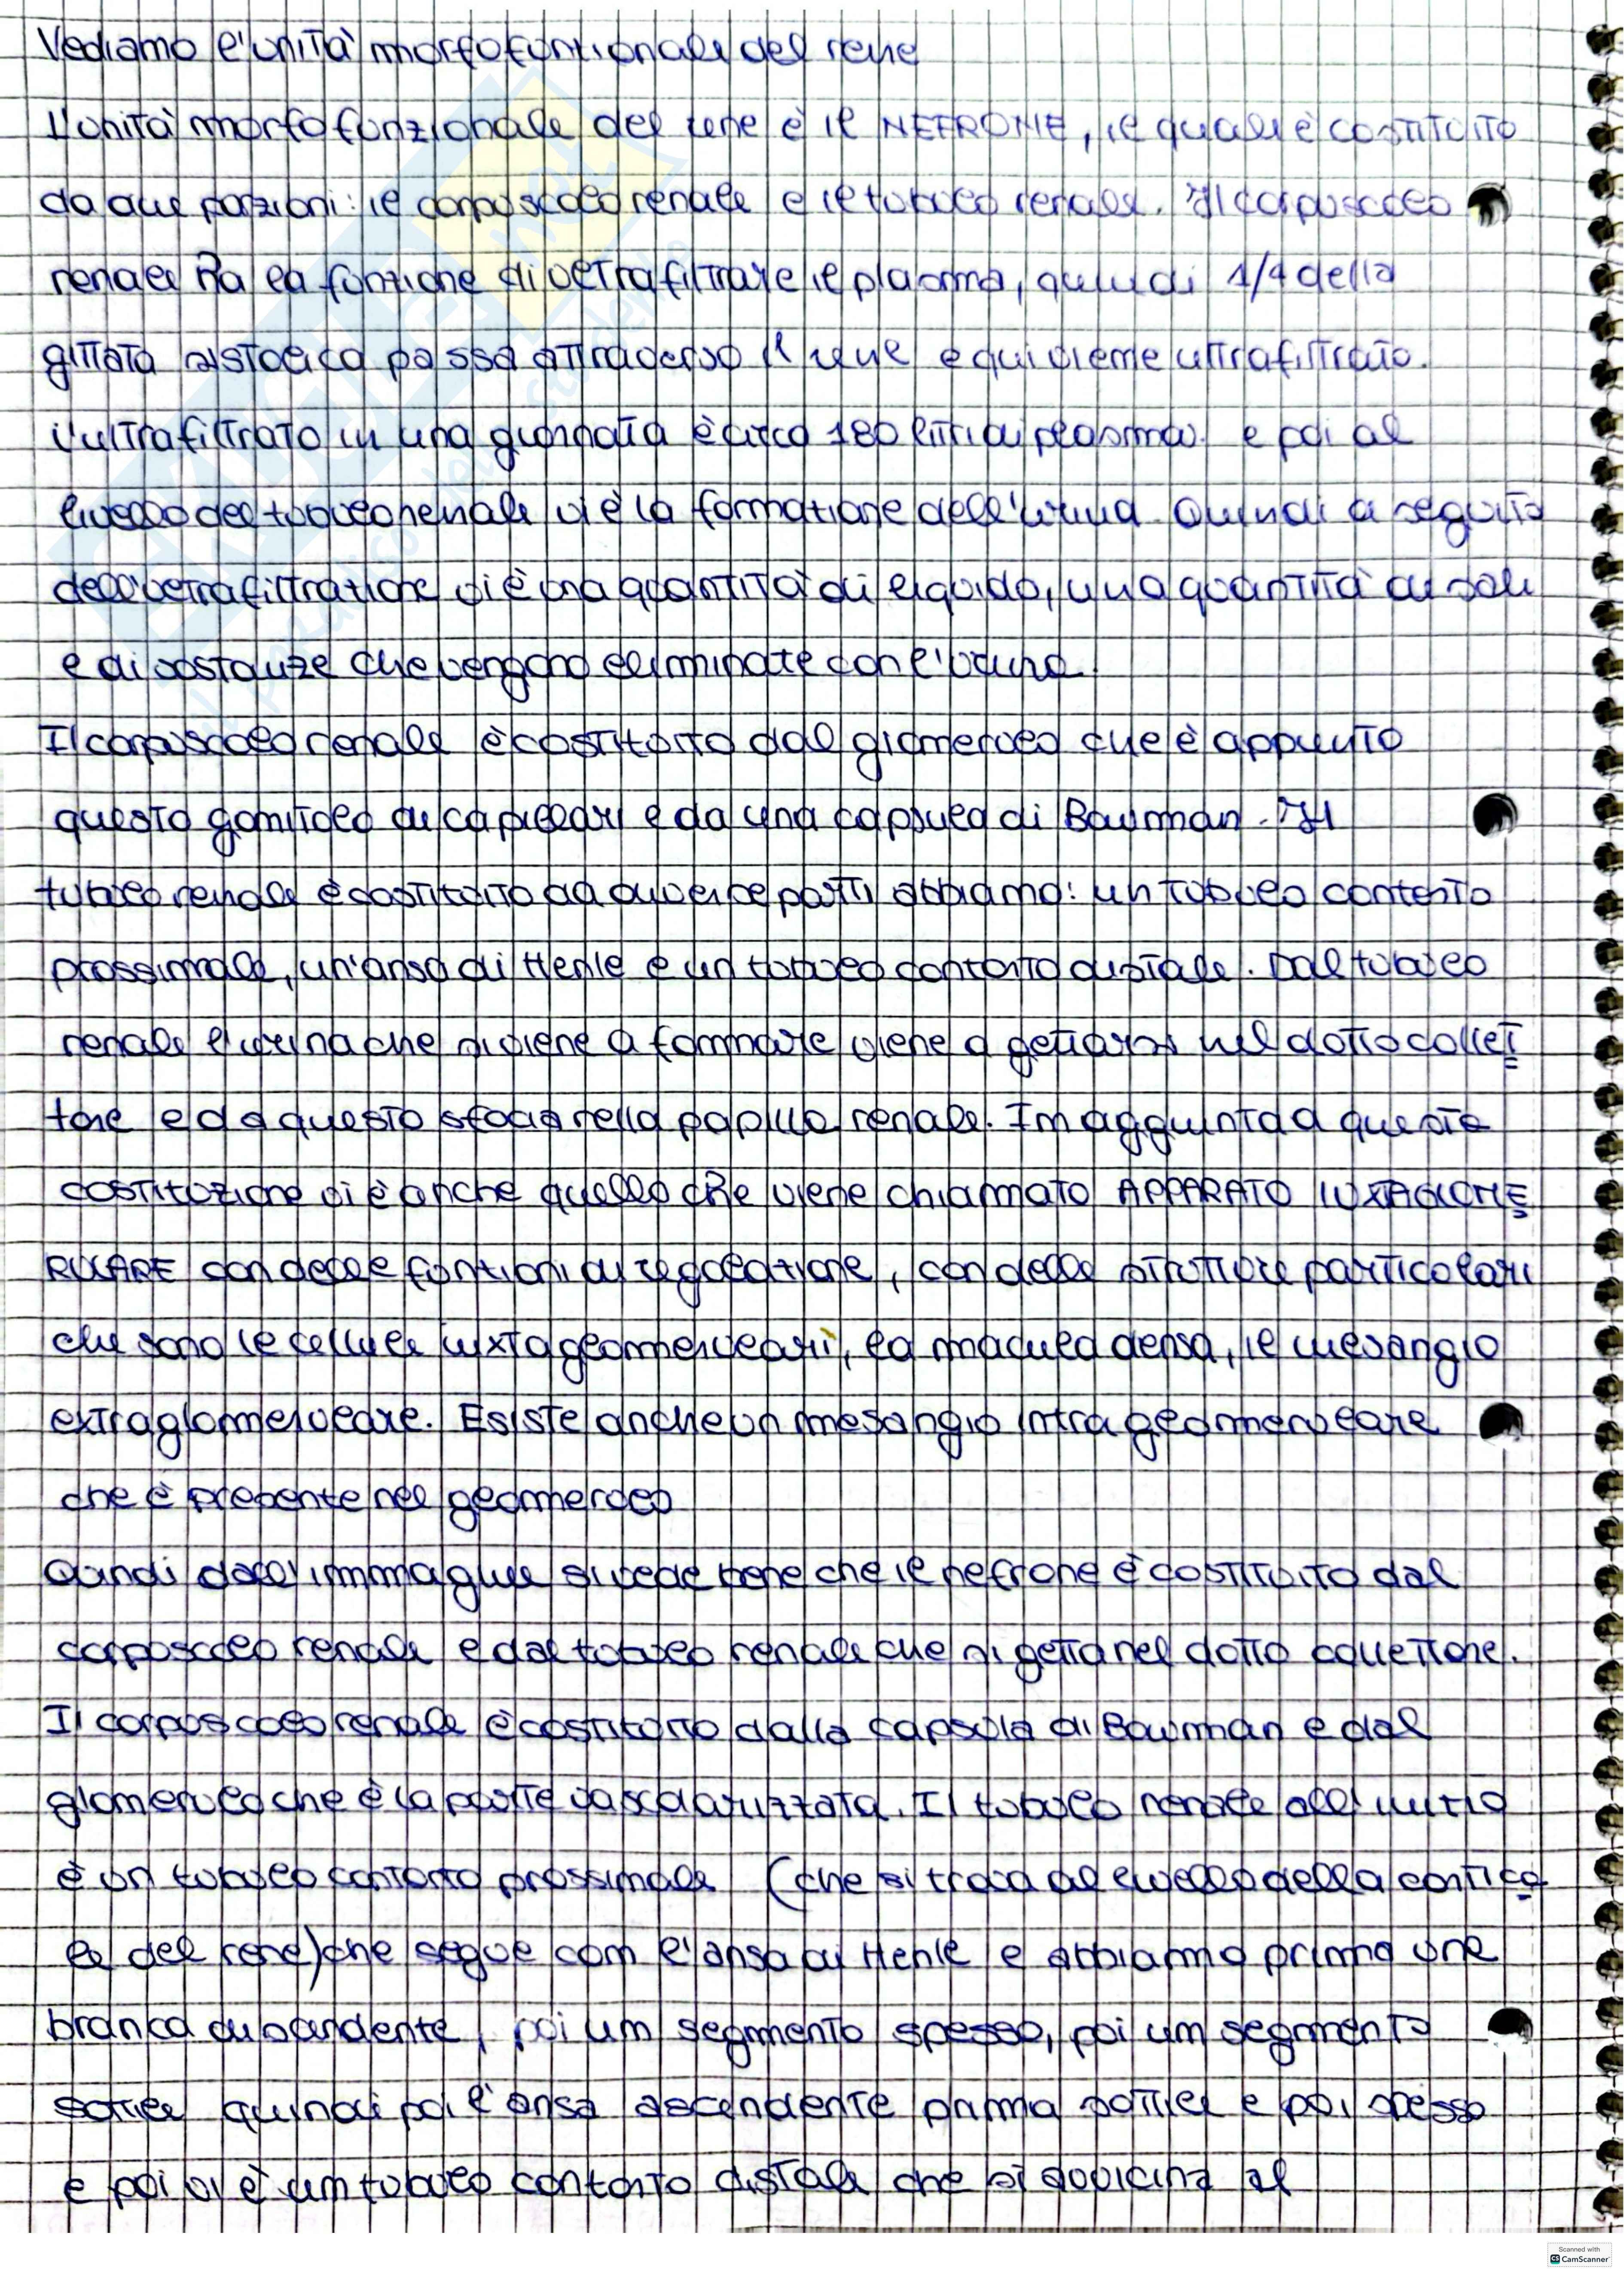 Vediamo l'unità morfofunzionale del rene
L'unità morfofunzionale del rene è il NEFRONE, il quale è costituito
da due porzioni: il corpuscolo renale e il tubulo renale. Il corpuscolo
renale ha la funzione di ultrafiltrare il plasma, quindi 1/4 della
gittata sistolica passa attraverso il rene e qui viene ultrafiltrato.
L'ultrafiltrato in una giornata è circa 180 litri di plasma. e poi al
livello del tubulo renale vi è la formazione dell'urina. Quindi a seguito
dell'ultrafiltrazione vi è una quantità di liquido, una quantità di sali
e di sostanze che vengono eliminate con l'urina.
Il corpuscolo renale è costituito dal glomerulo che è appunto
questo gomitolo di capillari e da una capsula di Bowman. Il
tubulo renale è costituito da diverse parti abbiamo: un tubulo contorto
prossimale, un'ansa di Henle e un tubulo contorto distale. Dal tubulo
renale l'urina che si viene a formare viene a gettarsi nel dotto collet
tore e da questo sfocia nella papilla renale. Im aggiunta a questa
costituzione vi è anche quello che viene chiamato APPARATO IUXTAGLOME
RULARE con delle funzioni di regolazione, con delle strutture particolari
che sono le cellule iuxtaglomerulari, la macula densa, il mesangio
extraglomerulare. Esiste anche un mesangio intraglomerulare
che è presente nel glomerulo
Quindi dall'immagine si vede bene che il nefrone è costituito dal
corpuscolo renale e dal tubulo renale che si getta nel dotto collettore.
Il corpuscolo renale è costituito dalla capsula di Bowman e dal
glomerulo che è la parte vascolarizzata. Il tubulo renale all'inizio
è un tubulo contorto prossimale (che si trova al livello della cortica
le del rene) che segue com l'ansa di Henle e abbiamo prima una
branca discendente, poi um segmento spesso, poi um segmento
sottile quindi poi l'ansa ascendente prima sottile e poi spessa
e poi vi è um tubulo contorto distale che si avvicina al
Scanned with
CS CamScanner